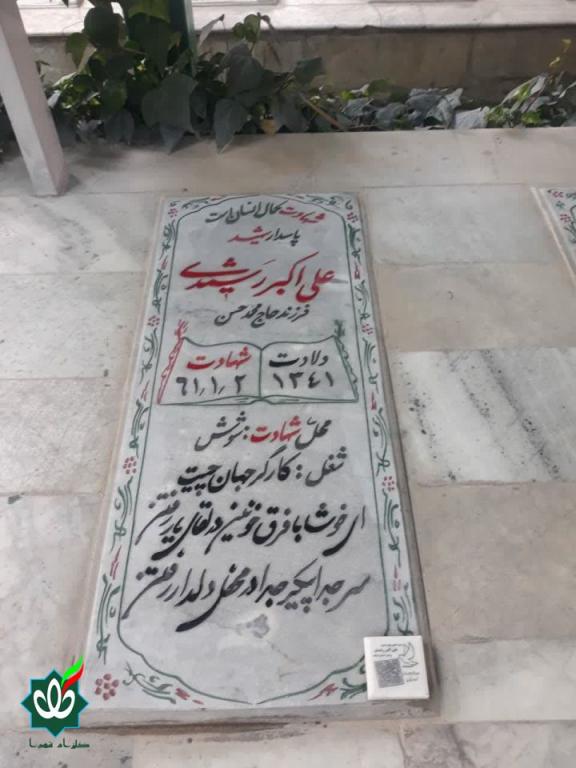 شهادت کمال انسان است
پاسدار شهید
علی اکبر رشیدی
فرزند حاج محمدحسن
ولادت
۱۳۴۱
شهادت
۶۱٫۱٫۲
محل شهادت: شوش
شغل: کارگر جهان چیت
ای خوشا با فرق خونین در لقای یار رفتن
سر جدا پیکر جدا در محفل دلدار رفتن
گلزار شهدا